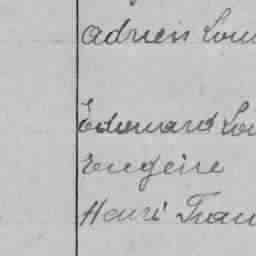 Adrien Lou
Edouard Lou
Eugène
Henri Fran